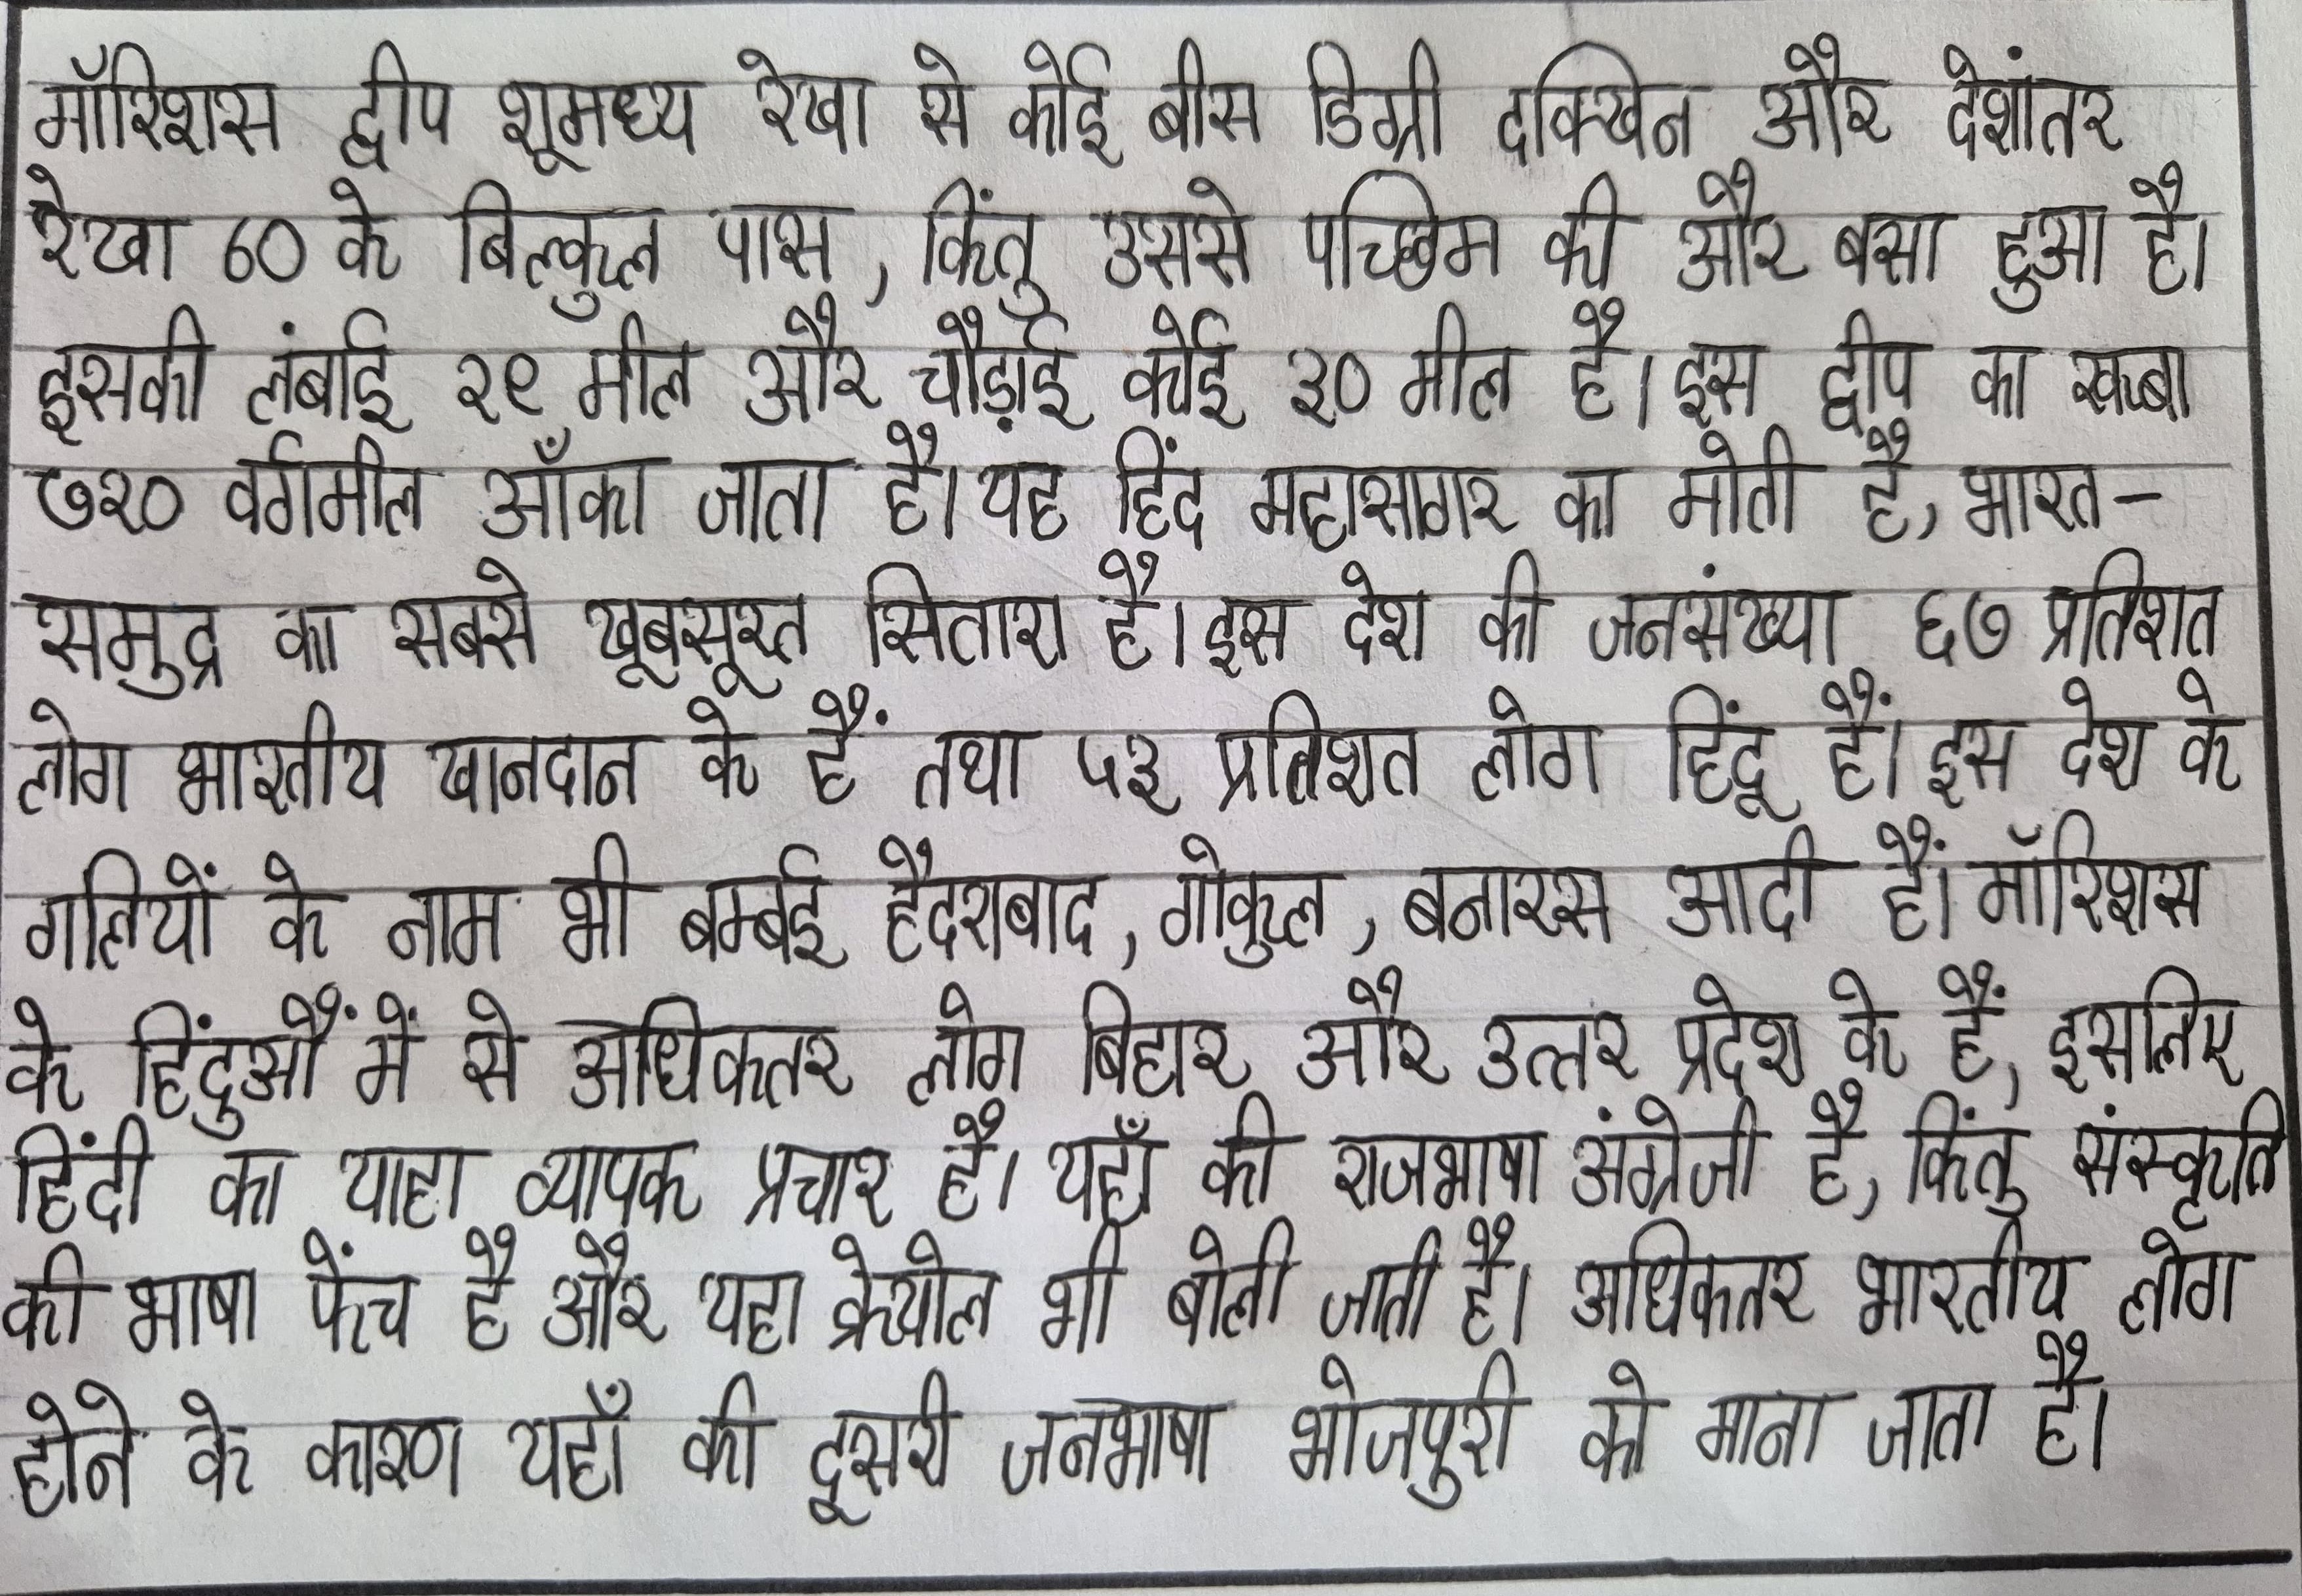 मॉरिशस द्वीप शूमध्य रेखा से कोई बीस डिग्री दक्खिन और देशांतर
रेखा 60 के बिल्कुल पास, किंतु उससे पच्छिम की और बसा हुआ है।
इसकी लंबाई २९ मील और चौड़ाई कोई ३० मील है। इस द्वीप का रकबा
७२० वर्गमील आँका जाता है। यह हिंद महासागर का मोती है, भारत-
समुद्र का सबसे खूबसूरत सितारा है। इस देश की जनसंख्या ६७ प्रतिशत
लोग भारतीय खानदान के हैं तथा ५३ प्रतिशत लोग हिंदू हैं। इस देश के
गलियों के नाम भी बम्बई हैदराबाद, गोकुल, बनारस आदी हैं। मॉरिशस
के हिंदुऔं में से अधिकतर लोग बिहार और उत्तर प्रदेश के हैं, इसलिए
हिंदी का याहा व्यापक प्रचार है। यहाँ की राजभाषा अंग्रेजी है, किंतु संस्कृति
की भाषा फेंच है और यहा क्रेयोल भी बोली जाती है। अधिकतर भारतीय लोग
होने के कारण यहाँ की दूसरी जनभाषा भोजपुरी को माना जाता है।